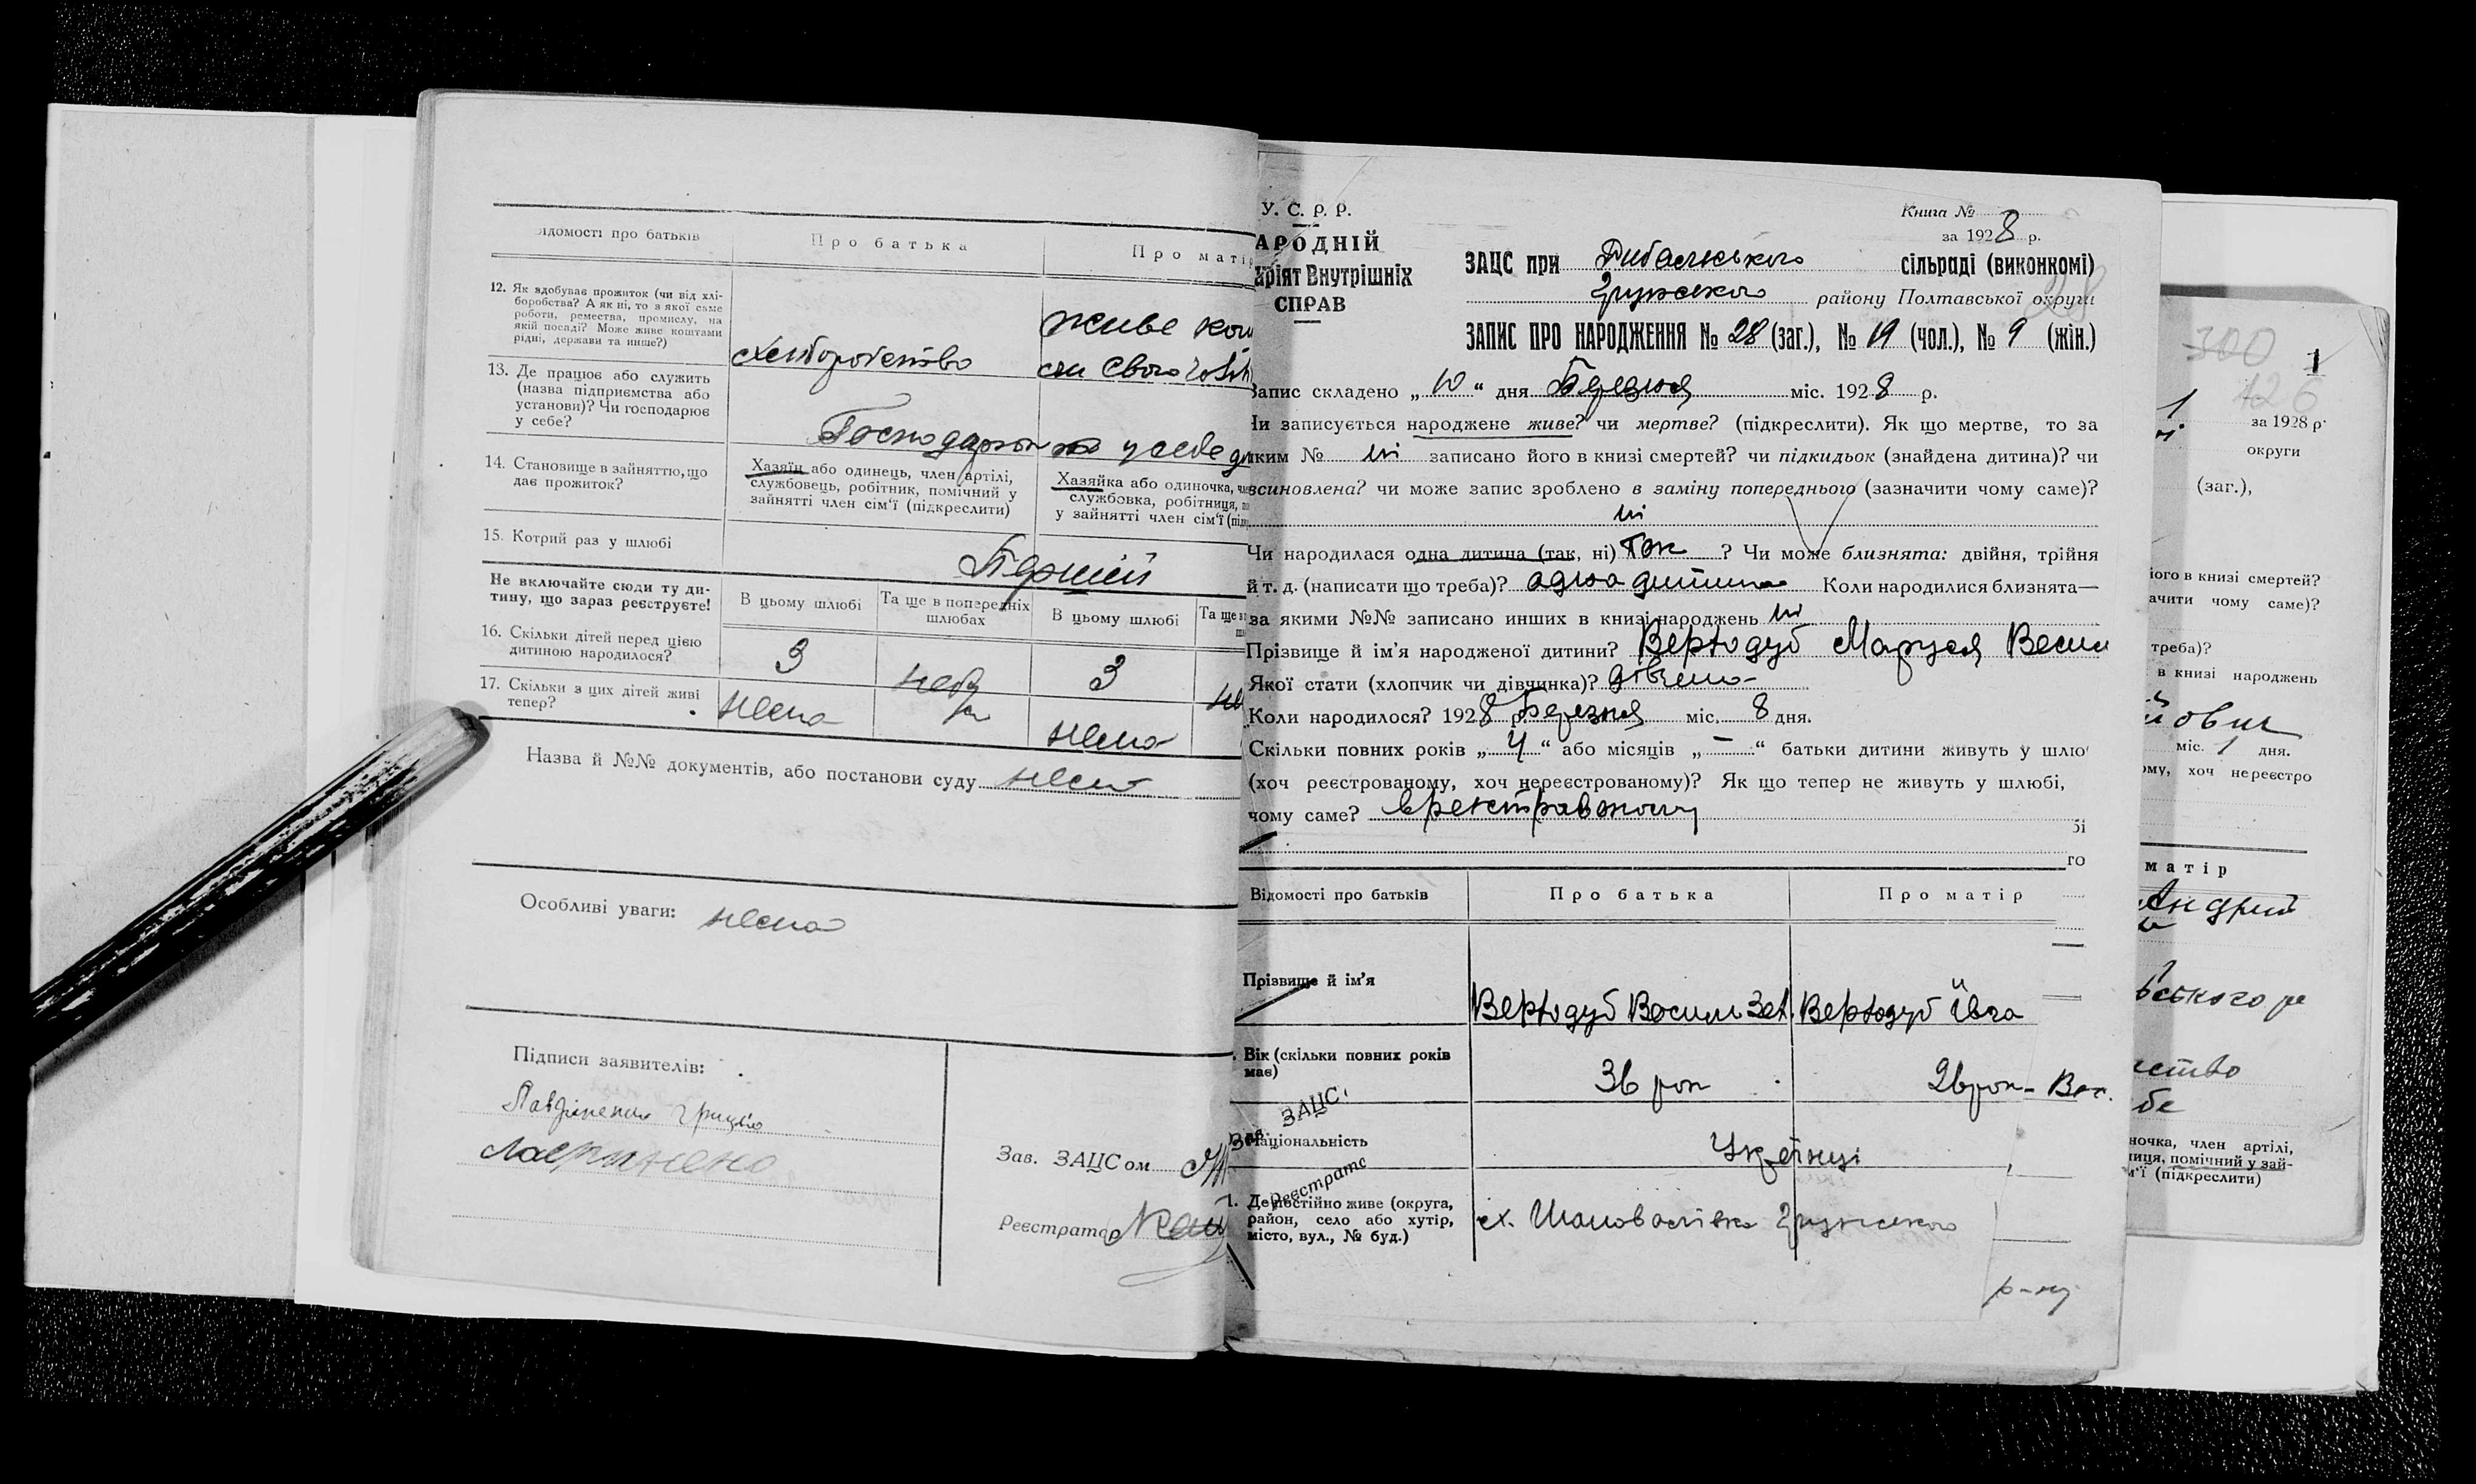 ідомості про батьків
Про батька
Про матір
12. Як здобуває прожиток (чи від хлі-
боробства? А як ні, то з якої саме
роботи, ремества, промислу, на
якій посаді? Може живе коштами
рідні, держави та инше?)
хліборобство
живе кош
ом свого
13. Де працює або служить
(назва підприємства або
установи)? Чи господарює
у себе?
у себе
14. Становище в зайняттю, що
дає прожиток?
Хазяїн або одинець, член артілі,
службовець, робітник, помічний у
зайнятті член сім'ї (підкреслити)
Хазяйка або одиночка, чле
службовка, робітниця, по
у зайнятті член сім'ї (підк
15. Котрий раз у шлюбі
Перший
Не включайте сюди ту ди-
тину, що зараз реєструєте!
В цьому шлюбі
Та ще в попередніх
шлюбах
В цьому шлюбі
Та ще в
16. Скільки дітей перед цією
дитиною народилося?
3
3
17. Скільки з цих дітей живі
тепер?
нема
нема
Назва й №№ документів, або постанови суду нема
Особливі уваги: нема
Підписи заявителів:
Зав. ЗАЦСом
Реєстратор
У. С. Р. Р.
АРОДНІЙ
аріят Внутрішніх
СПРАВ
Книга №
за 1928 р.
28
ЗАЦС при Рибальського сільраді (виконкомі)
Грунського району Полтавської округи
ЗАПИС ПРО НАРОДЖЕННЯ № 28 (заг.), № 19 (чол.), № 9 (жін.)
Запис складено „10“ дня Березня міс. 1928 р.
Чи записується народжене живе? чи мертве? (підкреслити). Як що мертве, то за
яким № ні записано його в книзі смертей? чи підкидьок (знайдена дитина)? чи
всиновлена? чи може запис зроблено в заміну попереднього (зазначити чому саме)?
ні
Чи народилася одна дитина (так, ні) так ? Чи може близнята: двійня, трійня
й т. д. (написати що треба)? одна дитина Коли народилися близнята—
за якими №№ записано инших в книзі народжень ні
Прізвище й ім'я народженої дитини? Вертодуб Маруся Васи
Якої стати (хлопчик чи дівчинка)? дівчина
Коли народилося? 1928 р. Березня міс. 8 дня.
Скільки повних років „4“ або місяців „–“ батьки дитини живуть у шлю
(хоч реєстрованому, хоч нереєстрованому)? Як що тепер не живуть у шлюбі,
чому саме?
бі
го
Відомості про батьків
Про батька
Про матір
Прізвище й ім'я
Вертодуб Василь Зах.
Вертодуб Ївга
Вас.
Вік (скільки повних років
має)
36 рок
26 рок
ЗАЦС
Національність
Українці
Реєстратс
Де постійно живе (округа,
район, село або хутір,
місто, вул., № буд.)
х. Шаповалівка Грунського
р-ну
300
126
1
за 1928 р.
округи
(заг.),
його в книзі смертей?
ачити чому саме)?
треба)?
в книзі народжень
міс. 1 дня.
ому, хоч нереєстро
матір
Андрий
ського ра
бе
ночка, член артілі,
ниця, помічний у зай-
м'ї (підкреслити)